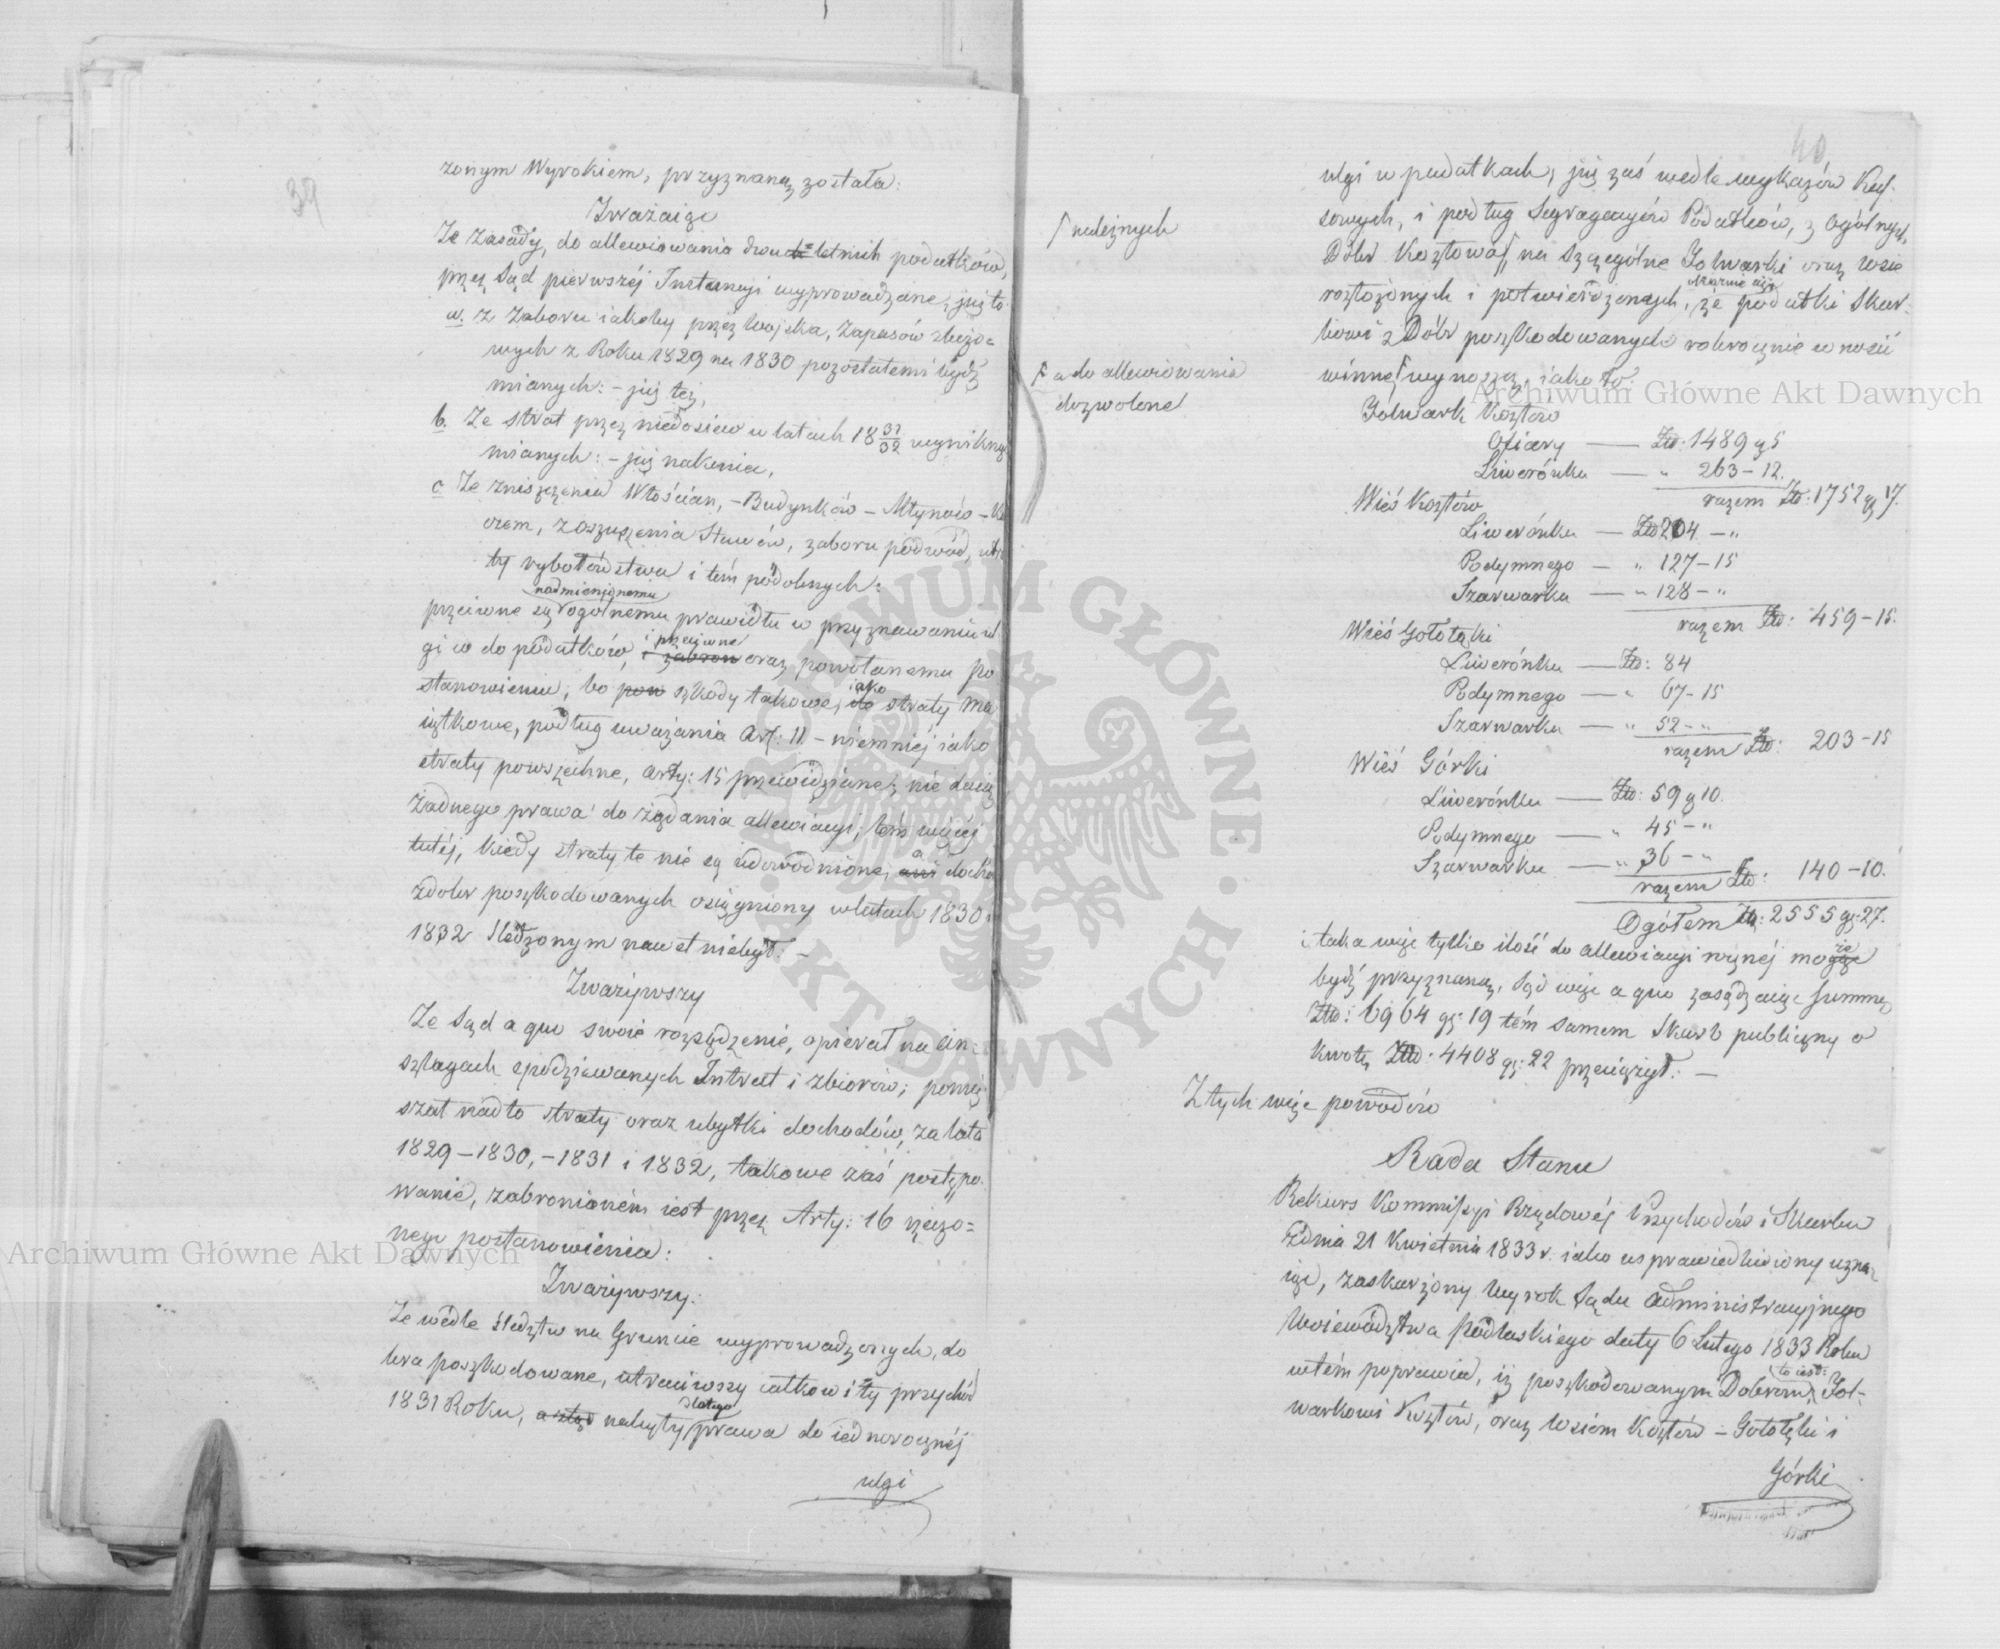 39
zonym Wyrokiem, przyznaną została:
Zważaiąc
Że zasady, do allewiowania dwuch letnich podatków,
przez Sąd pierwszéj Instancyi wyprowadzane, już to
a. z zaboru iakoby przez Woyska, zapasów zbożo=
wych z Roku 1829 na 1830 pozostałemi bydź
mianych: – już też,
b. Ze strat przez niedosiew w latach 18 31/32 wyniknąć
mianych: – już nakonia,
c Ze zniszczenia Włościan, – Budynków – Młynów – 
czem, zaszuszenia Stawów, zaboru podwód, utra
ty rybołówstwa i tém podobnych:
nadmienionemu
przeciwne są ogólnemu prawidłu w przyznawaniu ul
gi w do podatków, i przeciwne zabron oraz powołanemu po
stanowieniu, bo pow szkody takowe, iako te straty ma
iątkowe, podług uważania Art: 11 – niemniéj iako
straty powszechne, Arty: 15 przewidziane, nie daią
żadnego prawa do żądania allewiacyi, tém więcéj
tutéj, kiedy straty te nie są udowodnione, a ani docho
zdobr poszkodowanych osiągniony w latach 1830
1832 śledzonym nawet niebył. –
Zważywszy
Ze Sąd a quo swoie rozsądzenie, opierał na ein=
szlagach spodziewanych Intrat i zbiorów; pomię
szał nadto straty oraz ubytki dochodów, za lata
1829 – 1830, – 1831 i 1832, takowe zaś postępo
wanie, zabronioném iest przez Arty: 16 rzeczo=
nego postanowienia:
Zważywszy:
Ze wedle śledztw na Gruncie wyprowadzonych, do
bra poszkodowane, utraciwszy całkowity przychód
1831 Roku, a ztąd nabyły dlatego prawa do iednorocznéj
ulgi
40
ulgi w podatkach, już zaś wedle wykazów Kas=
sowych, i podług Segregacyów Podatków, z Ogólnych
należnych
Dóbr Kosztów na szczególne Folwarki oraz Wsie
rozłożonych i potwierdzonych, okazuie się, że podatki Skar=
bowi z Dóbr poszkodowanych rokrocznie wnosić
a do allewiowania
dozwolone
winne wynoszą, iako to:
Folwark Kosztów
Ofiary — Złt: 1489 g 5
Liwerónku — „ 263 – 12.
razem Złt: 1752 g 17.
Wieś Kosztów
Liwerónku — Złt 204 – „
Podymnego — „ 127 – 15
Szarwarku — „ 128 – „
razem Złt: 459 – 15.
Wieś Gołołąki
Liwerónku — Złt: 84
Podymnego — „ 67 – 15
Szarwarku — „ 52 – „
razem Złt: 203 – 15
Wieś Górki
Liwerónku — Złt: 59 g 10.
Podymnego — „ 45 – „
Szarwarku — „ 36 – „
razem Złt: 140 – 10.
Ogółem Złt: 2555 gr: 27.
i taka więc tylko ilość do allewiacyi roznéj może
bydź przyznaną, Sąd więc a quo zasądzaiąc summę
Złt: 6964 gr: 19 tém samem Skarb publiczny o
kwotę Złt: 4408 gr: 22 przeciążył. –
Z tych więc powodów
Rada Stanu
Rekurs Kommissyi Rządowéj Przychodów i Skarbu
z dnia 21 Kwietnia 1833 r. iako usprawiedliwiony uzna=
iąc, zaskarżony Wyrok Sądu Administracyjnego
Woiewództwa Podlaskiego daty 6 Lutego 1833 Roku
w tém poprawia, iż poszkodowanym Dobrom, to iest: Fol=
warkowi Kosztów, oraz Wsiom Kosztów – Gołołąki i
Górki
Archiwum Główne Akt Dawnych
Archiwum Główne Akt Dawnych
ARCHIWUM GŁÓWNE · AKT DAWNYCH ·